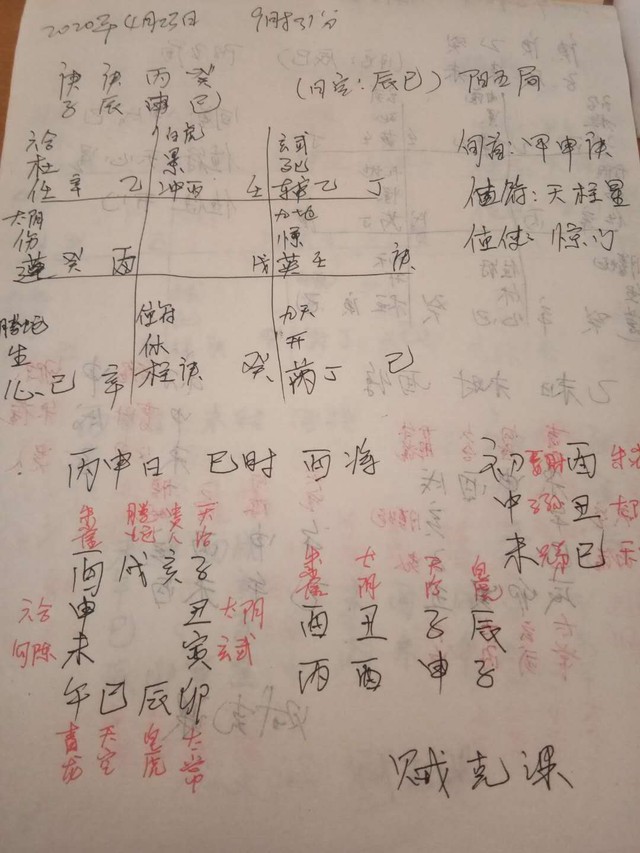 2020年4月23日 9时31分
庚 庚 丙 癸
子 辰 申 巳
(旬空:辰巳) 阳五局
旬首:甲申庚
值符:天柱星
值使:惊门
六合
杜
任 辛 乙
白虎
景
冲 丙 壬
玄武
死
辅 乙 丁
太阴
伤
蓬 癸 丙
戊
九地
惊
英 壬 庚
腾蛇
生
心 己 辛
值符
休
柱 庚 癸
九天
开
芮 丁 己
丙申日 巳时 酉将
初 酉
中 丑
末 巳
朱雀 腾蛇 贵人 天后
酉 戌 亥 子
六合 申 丑 太阴
勾陈 未 寅 玄武
午 巳 辰 卯
青龙 天空 白虎 太常
朱雀 太阴 天后 白虎
酉 丑 子 辰
丙 酉 申 子
贼克课